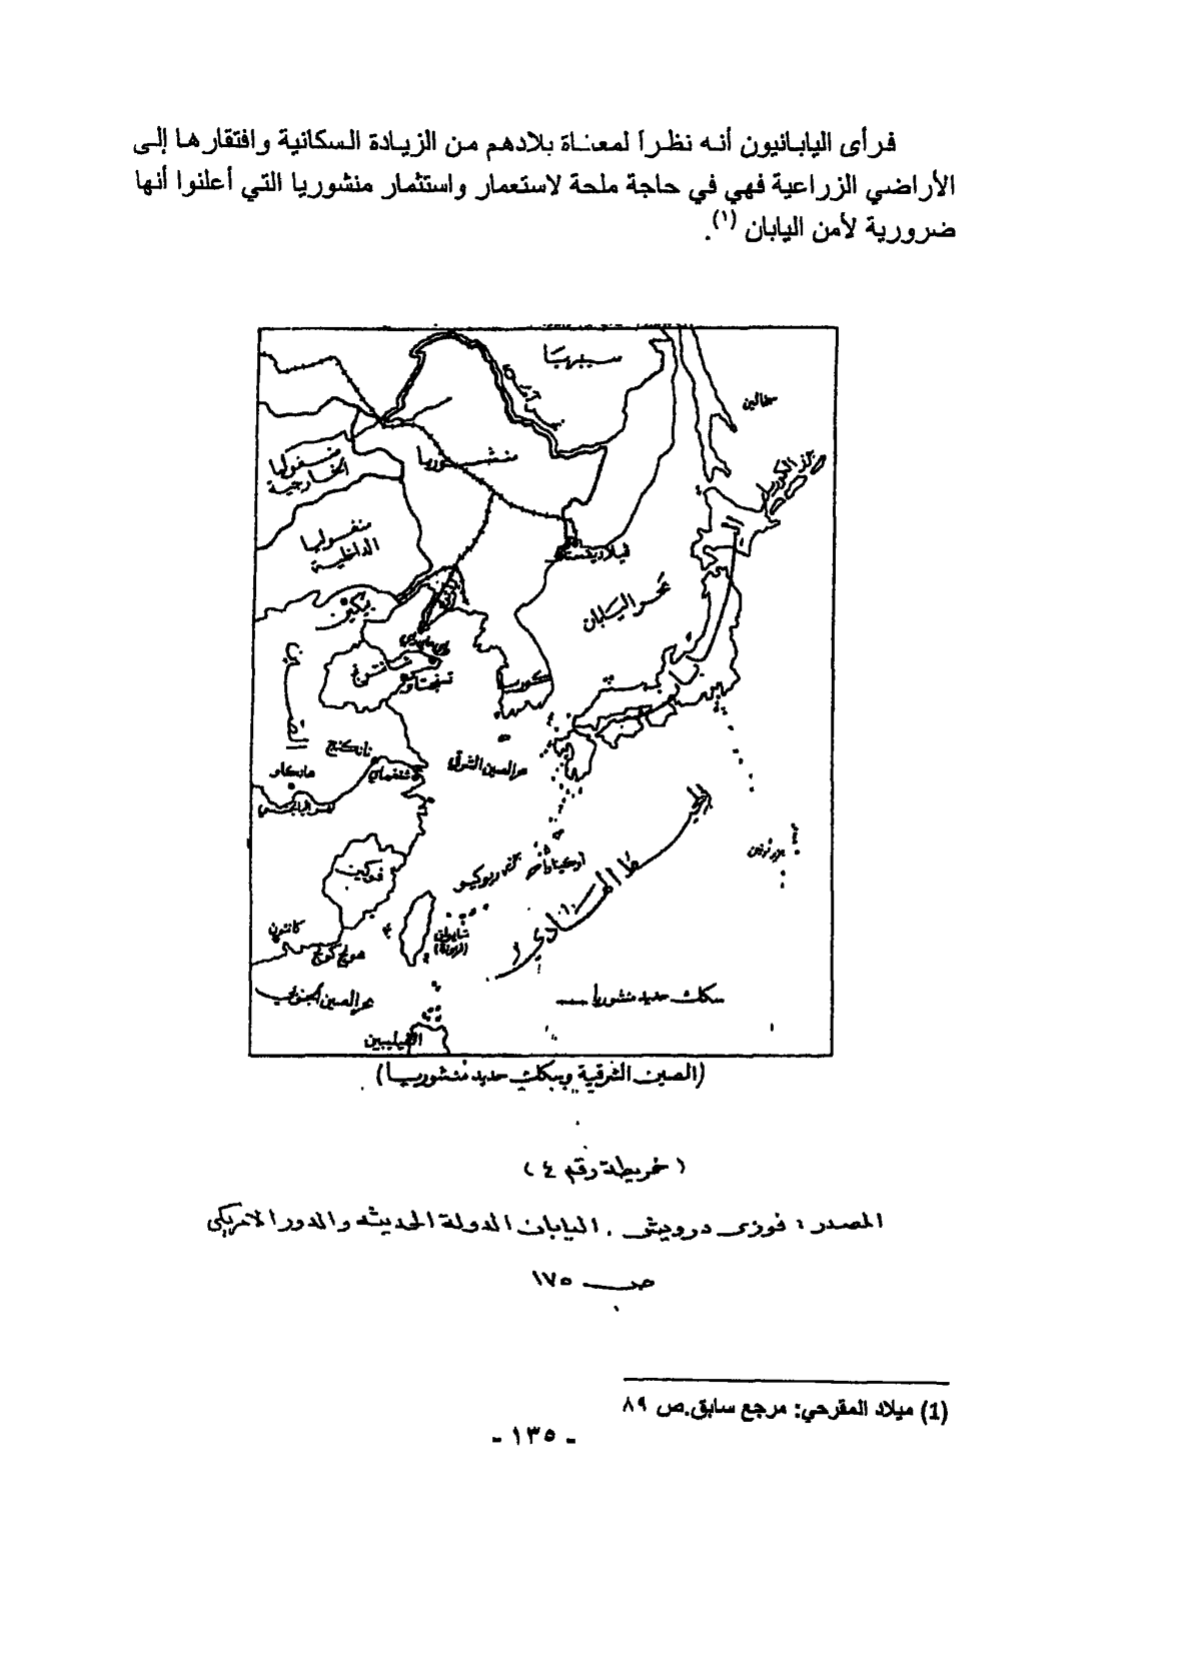 فرأى اليابانيون أنه نظراً لمعناة بلادهم من الزيادة السكانية وافتقارها إلى
الأراضي الزراعية فهي في حاجة ملحة لاستعمار واستثمار منشوريا التي أعلنوا أنها
ضرورية لأمن اليابان (١).
سيبريا
سخالين
منشوريا
منغوليا
الخارجية
منغوليا
الداخلية
فيلاديفستك
بحر اليابان
بيكين
شانتونج
تسنجتاو
كوريا
نانكنج
هانكاو
شنغهاي
بحر الصين الشرقي
فوكين
جزر ريوكيو
أوكيناوا
المحيط الهادي
كانتون
هونج كونج
تايوان
بحر الصين الجنوبي
سكك حديد منشوريا
الفيليبين
(الصين الشرقية وسكك حديد منشوريا)
(خريطة رقم ٤)
المصدر: فوزى درويش. اليابان الدولة الحديثه والدور الامريكى
ص ١٧٥
(1) ميلاد المقرحي: مرجع سابق.ص ٨٩
- ١٣٥ -